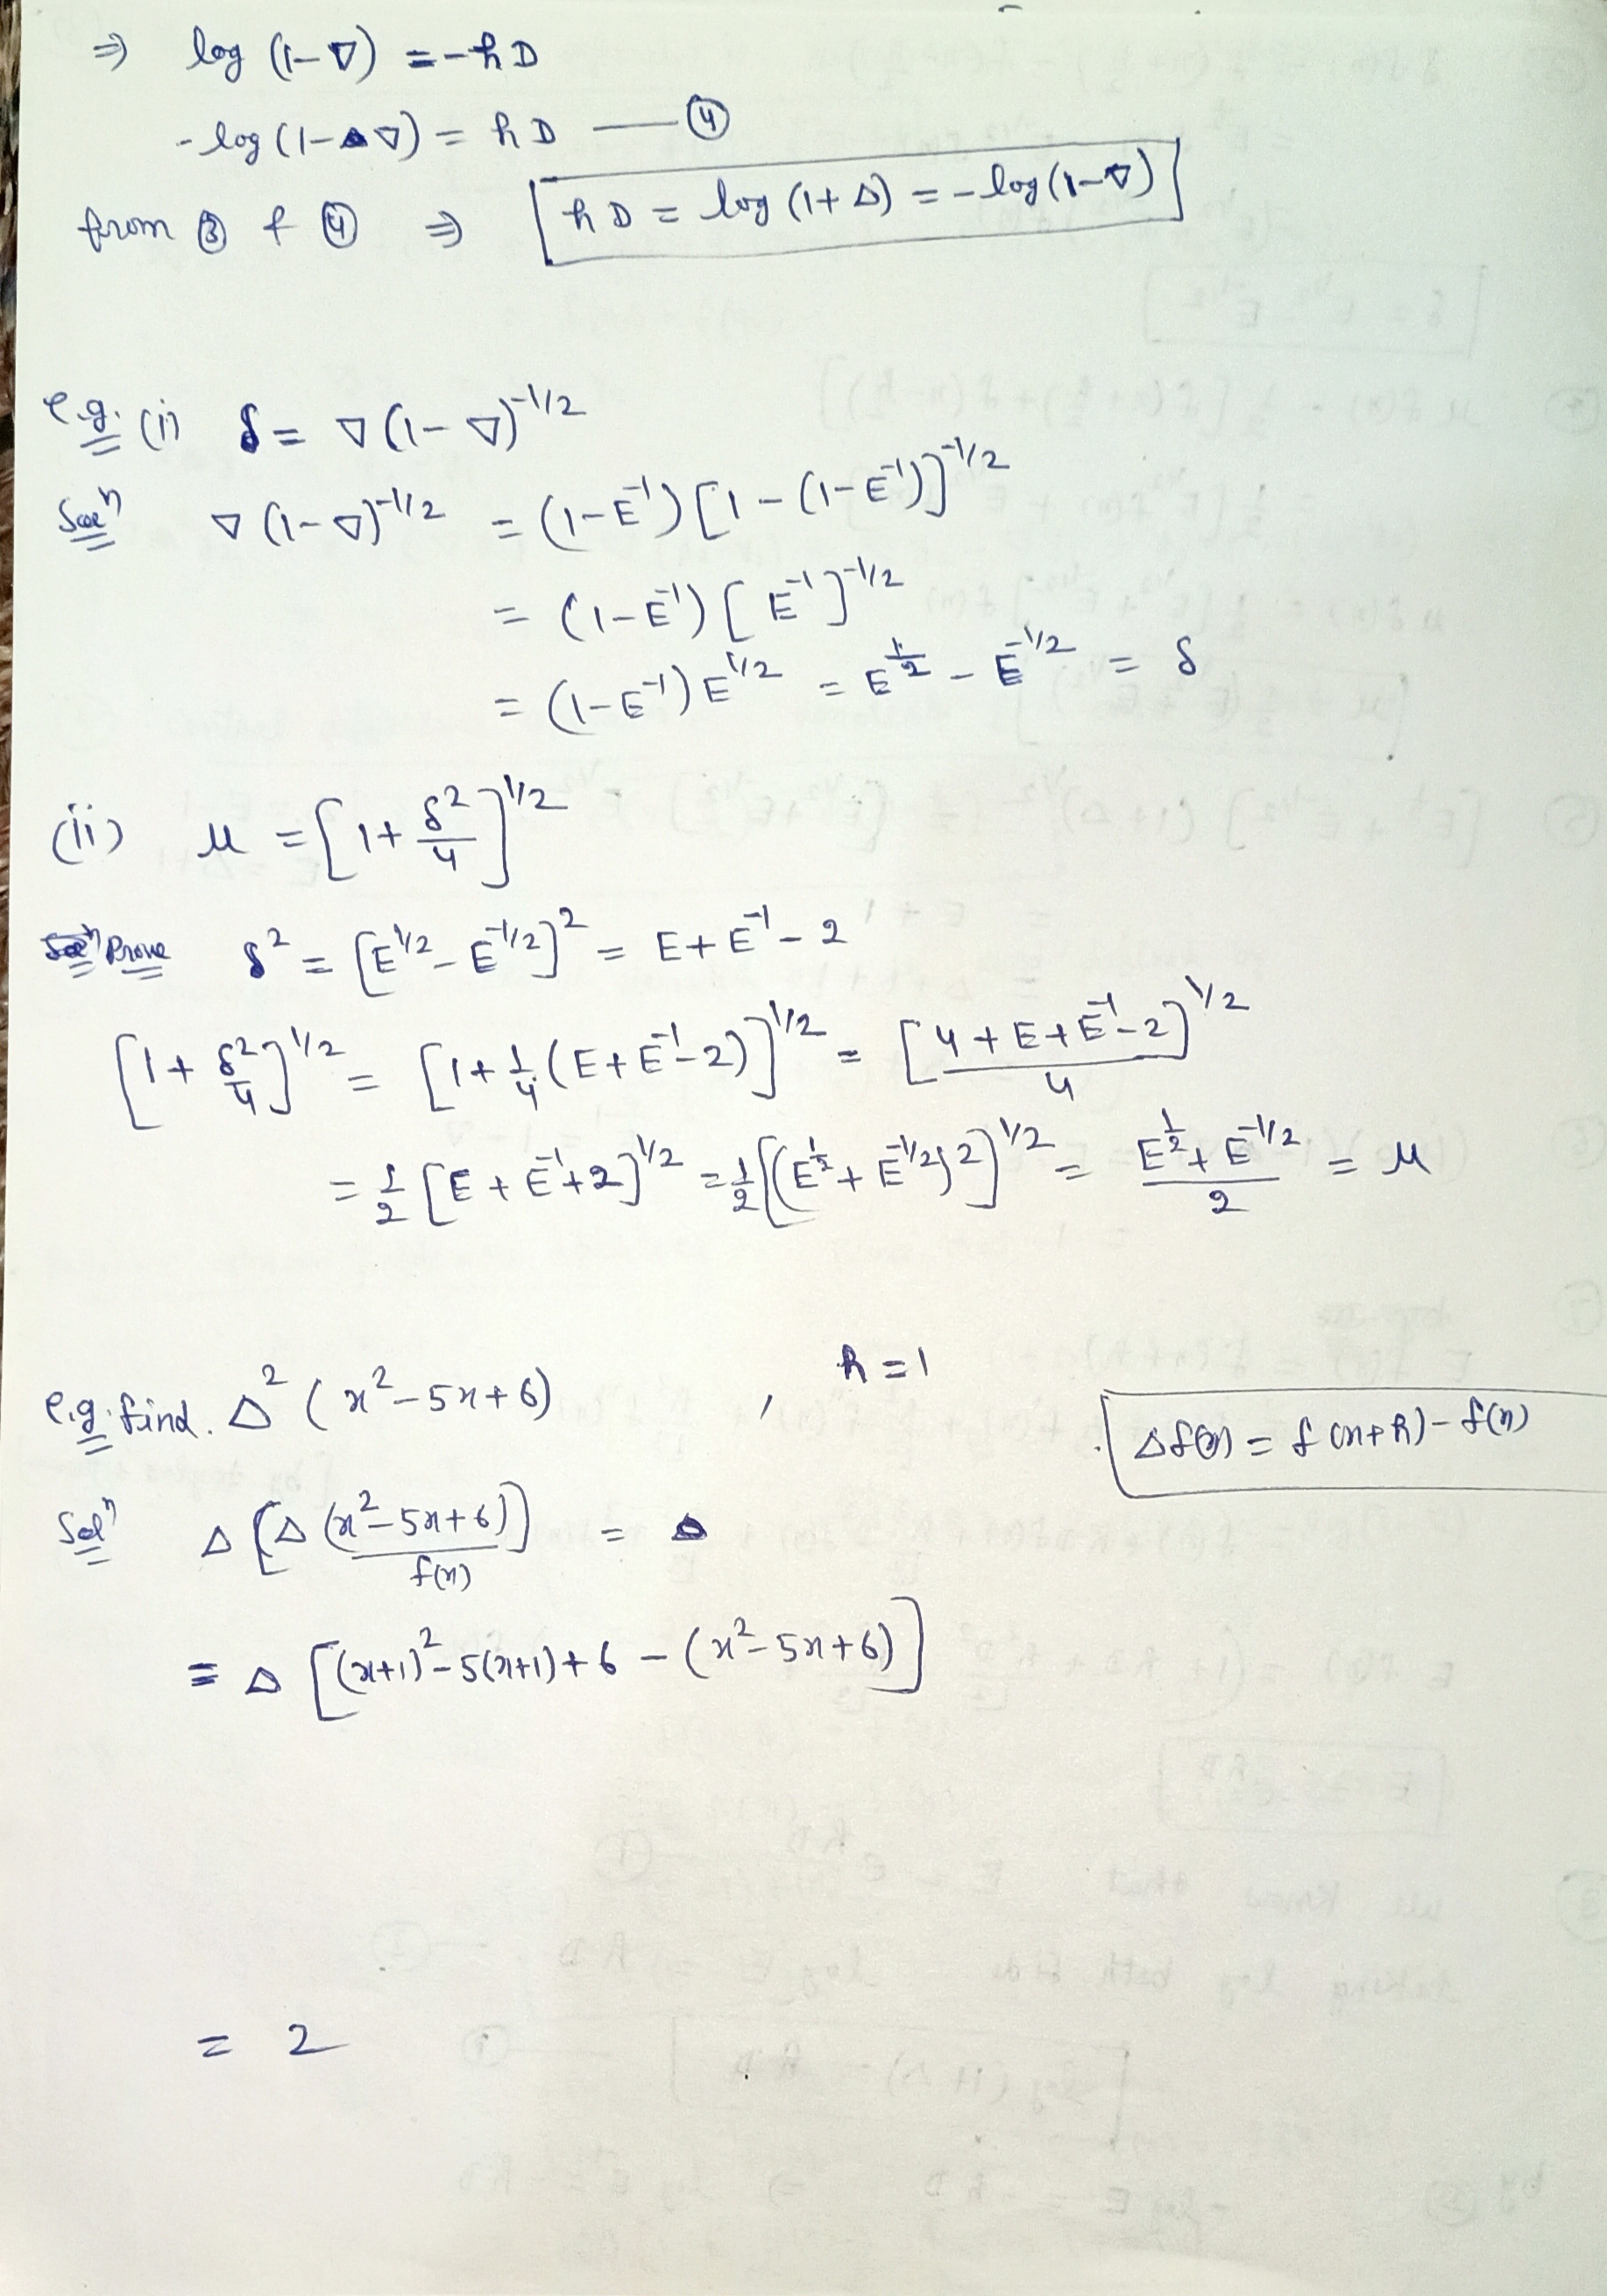 ⇒ log (1-∇) = -hD
-log (1-∇) = hD — ④
from ③ & ④ ⇒ [hD = log (1+Δ) = -log (1-∇)]
e.g. (i) δ = ∇(1-∇)^{-1/2}
Sol^n ∇(1-∇)^{-1/2} = (1-E^{-1}) [1-(1-E^{-1})]^{-1/2}
= (1-E^{-1}) [E^{-1}]^{-1/2}
= (1-E^{-1}) E^{1/2} = E^{1/2} - E^{-1/2} = δ
(ii) μ = [1+ δ^2/4]^{1/2}
Prove δ^2 = [E^{1/2} - E^{-1/2}]^2 = E+E^{-1}-2
[1+ δ^2/4]^{1/2} = [1+ 1/4 (E+E^{-1}-2)]^{1/2} = [(4+E+E^{-1}-2)/4]^{1/2}
= 1/2 [E+E^{-1}+2]^{1/2} = 1/2 [(E^{1/2}+E^{-1/2})^2]^{1/2} = (E^{1/2}+E^{-1/2})/2 = μ
e.g. find. Δ^2 (x^2-5x+6) , h=1
Δf(x) = f(x+h)-f(x)
Sol^n Δ[Δ(x^2-5x+6)] = Δ
f(x)
= Δ[(x+1)^2-5(x+1)+6-(x^2-5x+6)]
= 2